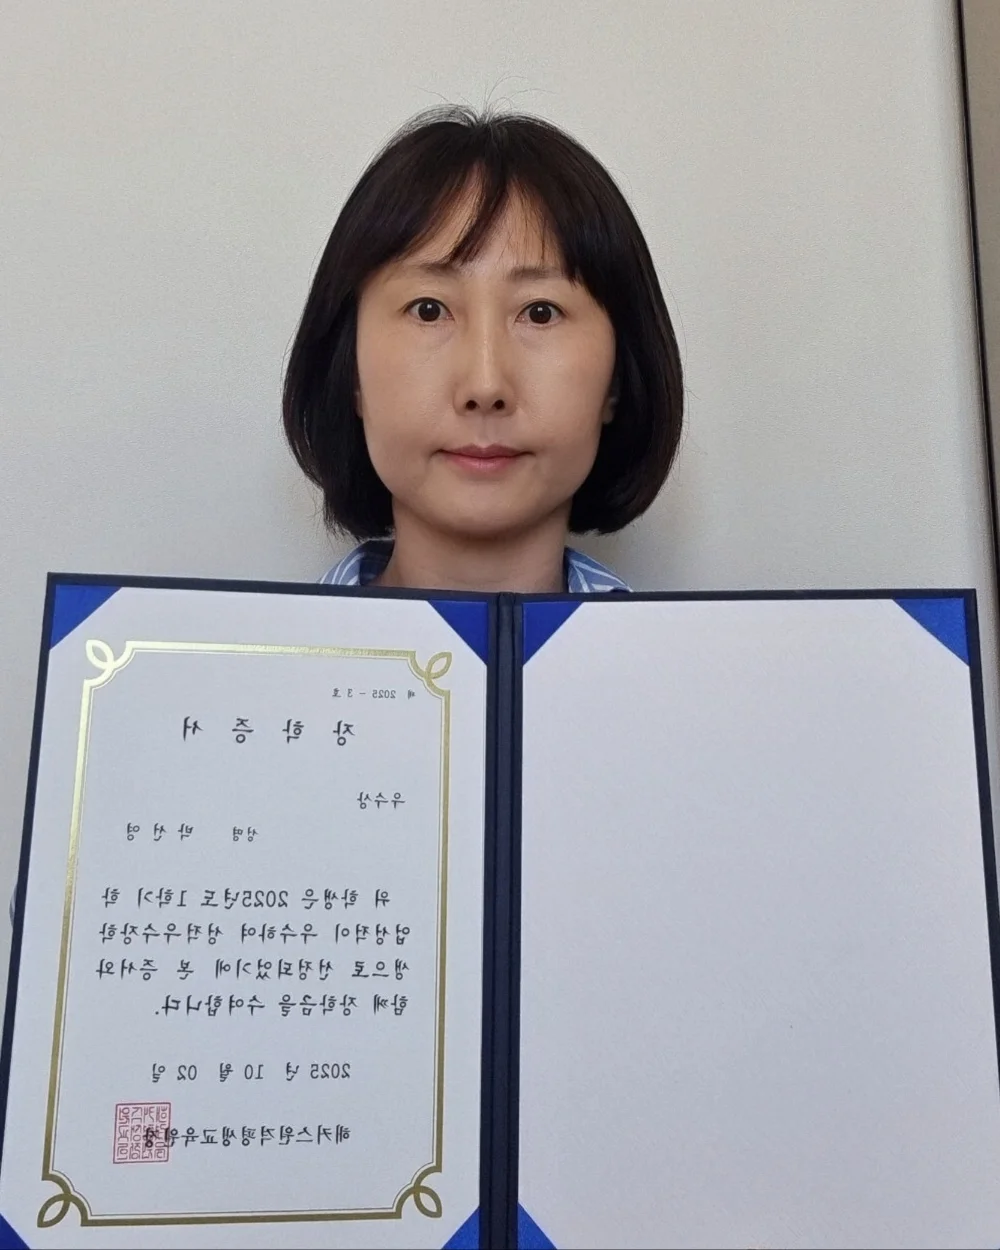 제 2025 - 3 호
장 학 증 서
우수상
성명 박 선 영
위 학생은 2025년도 1학기 학
업성적이 우수하여 성적우수장학
생으로 선정되었기에 본 증서와
함께 장학금을 수여합니다.
2025 년 10 월 02 일
해커스원격평생교육원장